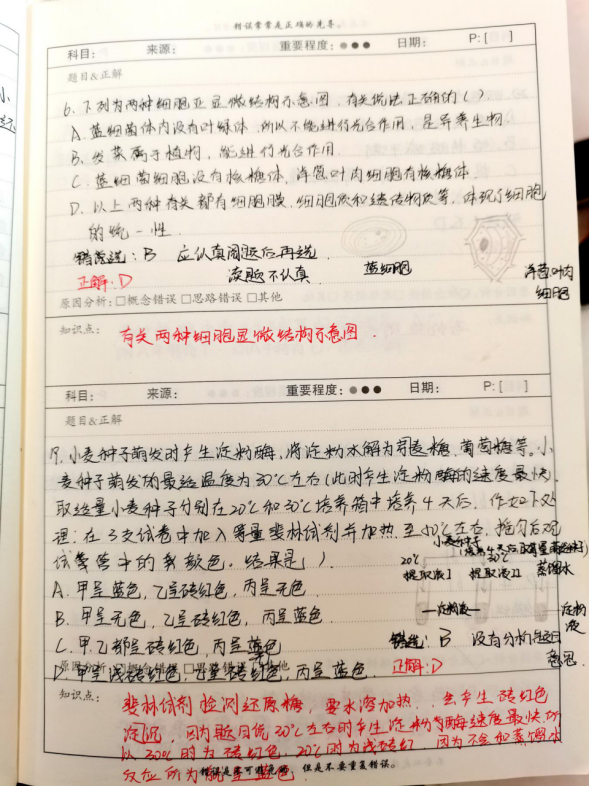 错误常常是正确的先导。
科目: 来源: 重要程度: 日期: P:[ ]
题目&正解
6. 下列为两种细胞亚显微结构示意图,有关说法正确的( )
A. 蓝细菌体内没有叶绿体,所以不能进行光合作用,是异养生物.
B. 发菜属于植物,能进行光合作用.
C. 蓝细菌细胞没有核糖体,洋葱叶肉细胞有核糖体
D. 以上两种有关都有细胞膜、细胞质和遗传物质等,体现了细胞
的统一性.
错误选:B 应认真阅题后再选
读题不认真 蓝细胞 洋葱叶肉
细胞
正解:D
原因分析:□概念错误 □思路错误 □其他
知识点: 有关两种细胞显微结构示意图.
科目: 来源: 重要程度: 日期: P:[ ]
题目&正解
小麦种子萌发时产生淀粉酶,将淀粉水解为麦糖、葡萄糖等。小
麦种子萌发的最适温度为30℃左右(此时产生淀粉酶的速度最快
取等量小麦种子分别在20℃和30℃培养箱中培养4天后,作如下处
理:在3支试管中加入等量斐林试剂并加热至40℃左右,摇匀后观
试管中的颜色。结果是( ).
小麦种子
20℃ 30℃
提取液Ⅰ 提取液Ⅱ 蒸馏水
A. 甲呈蓝色,乙呈砖红色,丙呈无色
B. 甲呈无色,乙呈砖红色,丙呈蓝色.
淀粉液 淀粉
液
C. 甲、乙都呈砖红色,丙呈蓝色
错选:B 没有分析
意思
D. 甲呈浅砖红色,乙呈砖红色,丙呈蓝色. 正解:D
原因分析:□概念错误 □思路错误 □其他
知识点: 斐林试剂检测还原糖,要水溶加热.会产生砖红色
沉淀,因为题目说20℃左右时产生淀粉酶速度最快,所
以30℃时为砖红色,20℃时为浅砖红,因为不会加蒸馏水
反应所为蓝色
错误是不可避免的,但是不要重复错误。